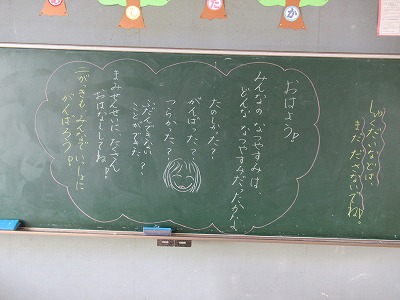 しゅくだいなどは、
まだ ださないでね!。
おはよう!
みんなの なつやすみは、
どんな なつやすみだったかな
たのしかった?
がんばった?
つらかった?
ふだんできない
ことができた?
まみせんせいに、たくさん
おはなししてね!
二がっきも みんなで いっしょに
がんばろう!
た
か